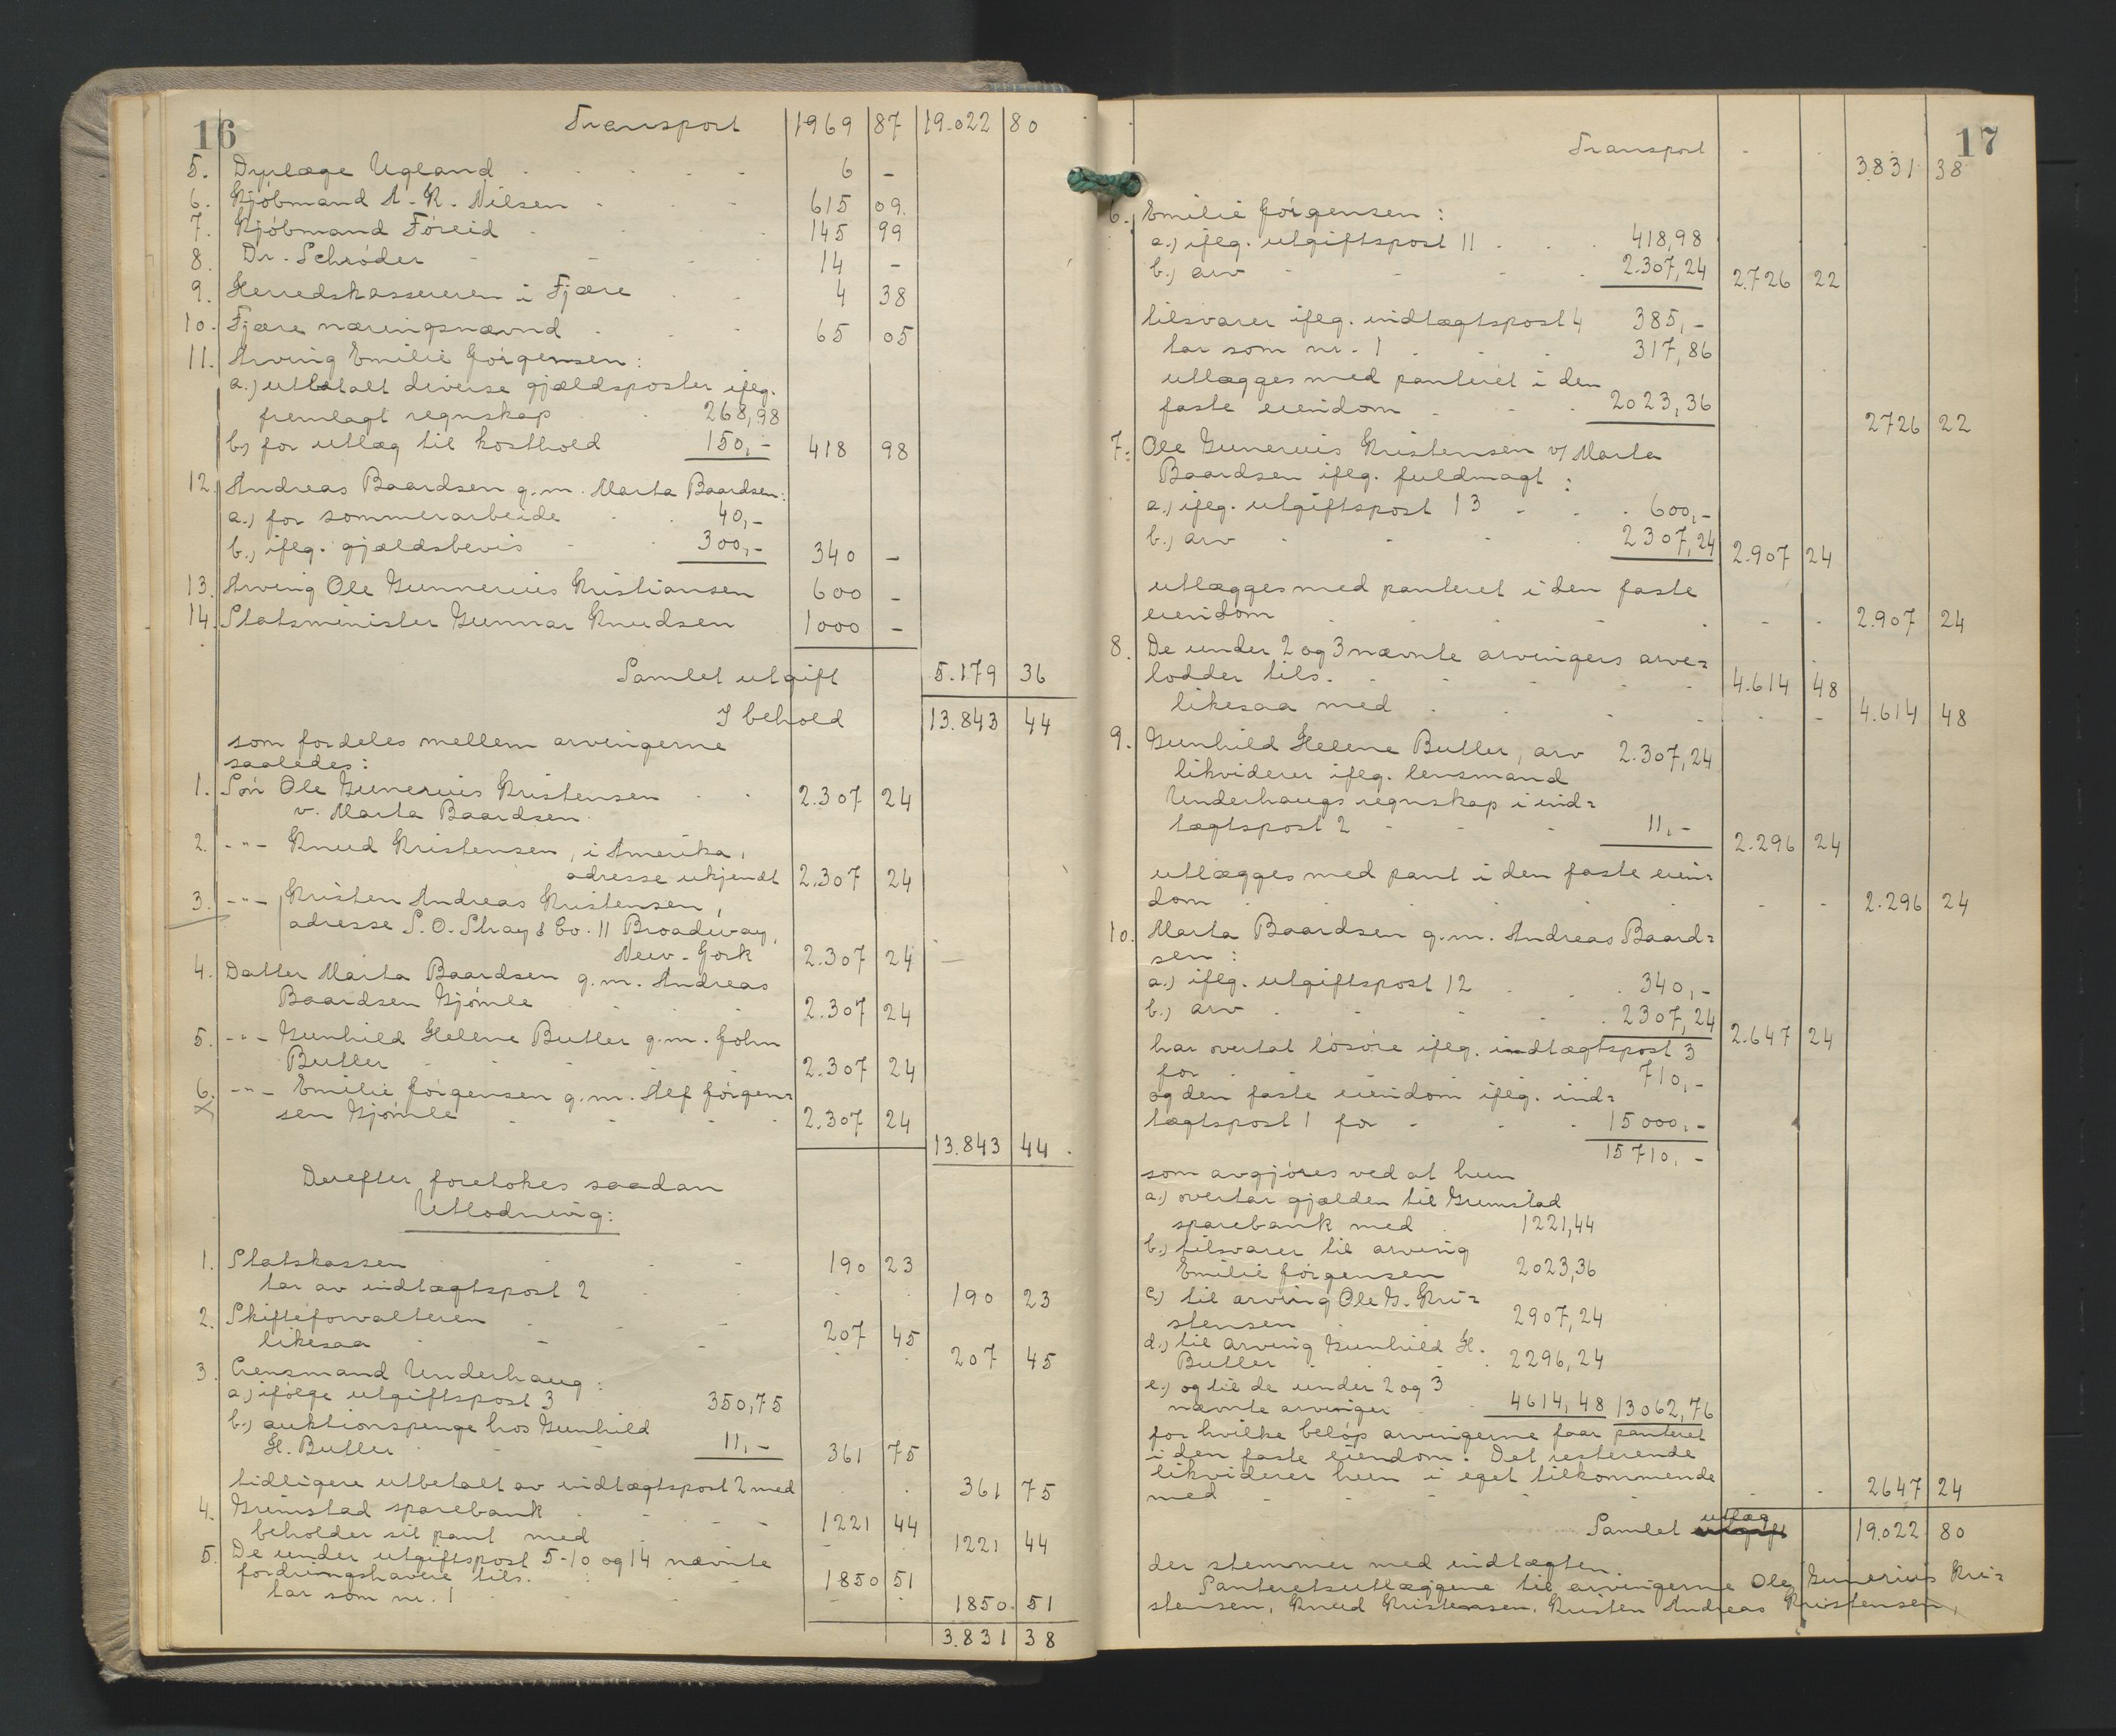 16
Transport 1969 87 19.022 80
5. Dyrlæge Ugland 6 -
6. Kjøbmand A. K. Nilsen 615 09.
7. Kjøbmand Føreid 145 99
8. Dr. Schrøder 14 -
9. Herredskassereren i Fjære 4 38
10. Fjære næringsnævnd 65 05
11. Arving Emilie Jørgensen:
a.) utbetalt diverse gjældsposter ifлg.
fremlagt regnskap 268,98
b.) for utlæg til kosthold 150,- 418 98
12. Andreas Baardsen g.m. Marta Baardsen:
a.) for sommerarbeide 40,-
b.) ifølg. gjældsbevis 300,- 340 -
13. Arving Ole Gunnerius Kristiansen 600 -
14. Statsminister Gunnar Knudsen 1000 -
Samlet utgift 5.179 36
I behold 13.843 44
som fordeles mellem arvingerne
saaledes:
1. Søn Ole Gunerius Kristensen 2.307 24
v. Marta Baardsen.
2. -"- Knud Kristensen, i Amerika,
adresse ukjendt 2.307 24
3. -"- Kristen Andreas Kristensen,
adresse S. O. Stray & Co. 11 Broadway,
New-York 2.307 24
4. Datter Marta Baardsen g.m. Andreas
Baardsen Gjømle 2.307 24
5. -"- Gunhild Helene Butler g.m. John
Butler 2.307 24
6. -"- Emilie Jørgensen g.m. Alf Jørgen=
sen Gjømle 2.307 24
13.843 44.
Derefter foretokes saadan
Utlodning:
1. Statskassen 190 23
tar av indtægtspost 2 190 23
2. Skifteforvalteren 207 45
likesaa 207 45
3. Lensmand Underhaug:
a.) ifølge utgiftspost 3 350,75
b.) auktionspenge hos Gunhild
H. Butler 11,- 361 75
tidligere utbetalt av indtægtspost 2 med 361 75
4. Grimstad sparebank 1221 44
beholder sit pant med 1221 44
5. De under utgiftspost 5-10 og 14 nævnte
fordringshavere tils. 1850 51
tar som nr. 1 1850. 51
3.831 38
17
Transport 3831 38
6. Emilie Jørgensen:
a.) iflg. utgiftspost 11 418,98
b.) arv 2.307,24 2.726 22
tilsvarer iflg. indtægtspost 4 385,-
tar som nr. 1 317,86
utlægges med panteret i den
faste eiendom 2023,36 2726 22
7. Ole Gunerius Kristensen v/ Marta
Baardsen iflg. fuldmagt:
a.) iflg. utgiftspost 13 600,-
b.) arv 2307,24 2.907 24
utlægges med panteret i den faste
eiendom 2.907 24
8. De under 2 og 3 nævnte arvingers arve=
lodder tils. 4.614 48
likesaa med 4.614 48
9. Gunhild Helene Butler, arv 2.307,24
likviderer iflg. lensmand
Underhaugs regnskap i ind=
tægtspost 2 11,- 2.296 24
utlægges med pant i den faste eien=
dom 2.296 24
10. Marta Baardsen g.m. Andreas Baard=
sen:
a.) iflg. utgiftspost 12 340,-
b.) arv 2307,24 2.647 24
har overtat løsøre iflg. indtægtspost 3
for 710,-
og den faste eiendom iflg. ind=
tægtspost 1 for 15000,-
15710,-
som avgjøres ved at hun
a.) overtar gjælden til Grimstad
sparebank med 1221,44
b.) tilsvarer til arving
Emilie Jørgensen 2023,36
c.) til arving Ole G. Kri=
stensen 2907,24
d.) til arving Gunhild H.
Butler 2296,24
e.) og til de under 2 og 3
nævnte arvinger 4614,48 13062,76
for hvilke beløp arvingerne faar panteret
i den faste eiendom. Det resterende
likviderer hun i eget tilkommende
med 2647 24
Samlet utgift utlæg 19.022 80
der stemmer med indtægten.
Panteretsutlæggene til arvingerne Ole Gunerius Kri=
stensen, Knud Kristensen, Kristen Andreas Kristensen,